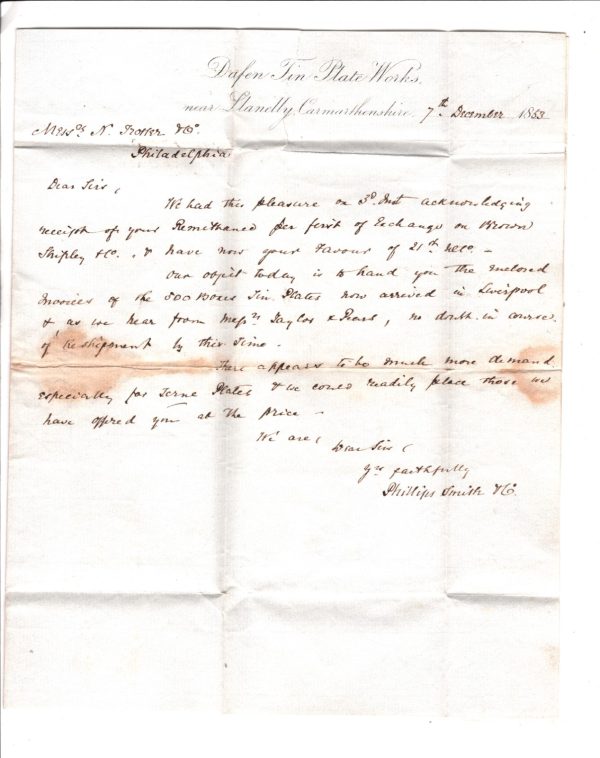 Dafen Tin Plate Works,
near Llanelly, Carmarthenshire, 7th December 1853
Messrs N. Trotter & Co.
Philadelphia
Dear Sirs,
We had this pleasure on 3d. Inst acknowledging
receipt of your Remittance per first of Exchange on Brown
Shipley & Co., & have now your favour of 21st
Our object today is to hand you the enclosed
Invoices of the 500 Boxes Tin Plates now arrived in Liverpool
& as we hear from Messrs Taylor & no doubt in course
of Reshipment by this time.
There appears to be much more demand
especially for Terne Plates & we could readily place those we
have offered you at the price –
We are,
Dear Sirs,
Yrs faithfully
Phillips Smith & Co.